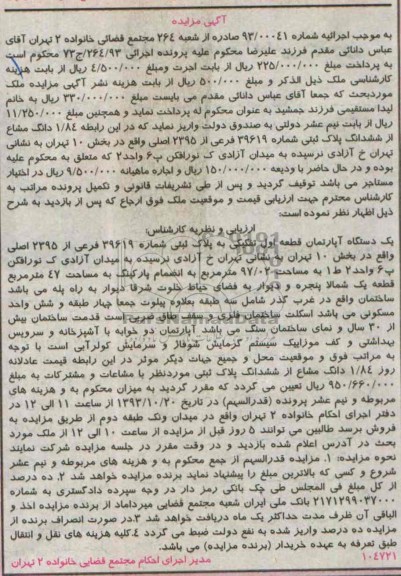 آگهی مزایده
به موجب اجرائیه شماره 93/00041 صادره از شعبه 264 مجتمع قضائی خانواده 2 تهران آقای
عباس دانائی مقدم فرزند علیرضا محکوم علیه پرونده اجرائی 264/93/ج73 محکوم است
به پرداخت مبلغ 225/000/000 ریال از بابت اجرت ومبلغ 4/500/000 ریال از بابت هزینه
کارشناسی ملک ذیل الذکر و مبلغ 500/000 ریال از بابت هزینه نشر آگهی مزایده ملک
موردبحث که جمعا آقای عباس دانائی مقدم می بایست مبلغ 330/000/000 ریال به خانم
لیدا مستقیمی فرزند جمشید به عنوان محکوم له پرداخت نماید و همچنین مبلغ 11/250/000
ریال از بابت نیم عشر دولتی به صندوق دولت واریز نماید که در این رابطه 1/84 دانگ مشاع
از ششدانگ پلاک ثبتی شماره 39619 فرعی از 2395 اصلی واقع در بخش 10 تهران به نشانی
تهران خ آزادی نرسیده به میدان آزادی ک نورافکن پ6 واحد2 که متعلق به محکوم علیه
بوده و در حال حاضر با ودیعه 150/000/000 ریال و اجاره ماهیانه 9/500/000 ریال در اختیار
مستاجر می باشد توقیف گردید و پس از طی تشریفات قانونی و تکمیل پرونده مراتب به
کارشناس محترم جهت ارزیابی قیمت و موقعیت ملک فوق ارجاع که پس از بازدید به شرح
ذیل اظهار نظر نموده است:
ارزیابی و نظریه کارشناس:
یک دستگاه آپارتمان قطعه اول تفکیکی به پلاک ثبتی شماره 39619 فرعی از 2395 اصلی
واقع در بخش 10 تهران به نشانی تهران خ آزادی نرسیده به میدان آزادی ک نورافکن
پ6 واحد2 ط1 به مساحت 97/02 مترمربع به انضمام پارکینگ به مساحت 47 مترمربع
قطعه یک شمالا پنجره و دیوار به فضای حیاط جنوب شرقا دیوار به راه پله می باشد
ساختمان واقع در غرب گذر شامل سه طبقه بعلاوه پیلوت جمعا چهار طبقه و شش واحد
مسکونی می باشد اسکلت ساختمان فلزی و سقف طاق ضربی است قدمت ساختمان بیش
از 30 سال و نمای ساختمان سنگ می باشد آپارتمان دو خوابه با آشپزخانه و سرویس
بهداشتی و کف موزاییک سیستم گرمایش شوفاژ و سرمایش کولرآبی است با توجه
به مراتب فوق و موقعیت محل و جمیع جهات دیگر موثر در این رابطه قیمت عادلانه
روز 1/84 دانگ مشاع از ششدانگ پلاک ثبتی موردنظر با مشاعات و مشترکات به مبلغ
950/660/000 ریال تعیین می گردد که مقرر گردید به میزان محکوم به و هزینه های
مربوطه و نیم عشر پرونده (قدرالسهم) در تاریخ 1393/10/20 از ساعت 11 الی 12 در
دفتر اجرای احکام خانواده 2 تهران واقع در میدان ونک طبقه دوم از طریق مزایده به
فروش برسد طالبین می توانند 5 روز قبل از مزایده از ساعت 10 الی 12 از ملک مورد
بحث در آدرس اعلام شده بازدید و در وقت مقرر در جلسه مزایده شرکت نمایند
نحوه مزایده: 1. مزایده قدرالسهم از جمع محکوم به و هزینه های مربوطه و نیم عشر
شروع و کسی که بالاترین مبلغ را پیشنهاد نماید برنده مزایده خواهد شد 2. ده درصد
از کل مبلغ فی المجلس طی چک بانکی رمز دار در وجه سپرده دادگستری به شماره
2171299037000 بانک ملی ایران شعبه مجتمع قضایی میرداماد از برنده مزایده اخذ و
الباقی آن ظرف مدت حداکثر یک ماه دریافت خواهد شد 3.در صورت انصراف برنده از
مزایده ده درصد واریز شده به نفع دولت ضبط می گردد 4.کلیه هزینه های نقل و انتقال
طبق تعرفه به عهده خریدار (برنده مزایده) می باشد.
104721 مدیر اجرای احکام مجتمع قضایی خانواده 2 تهران